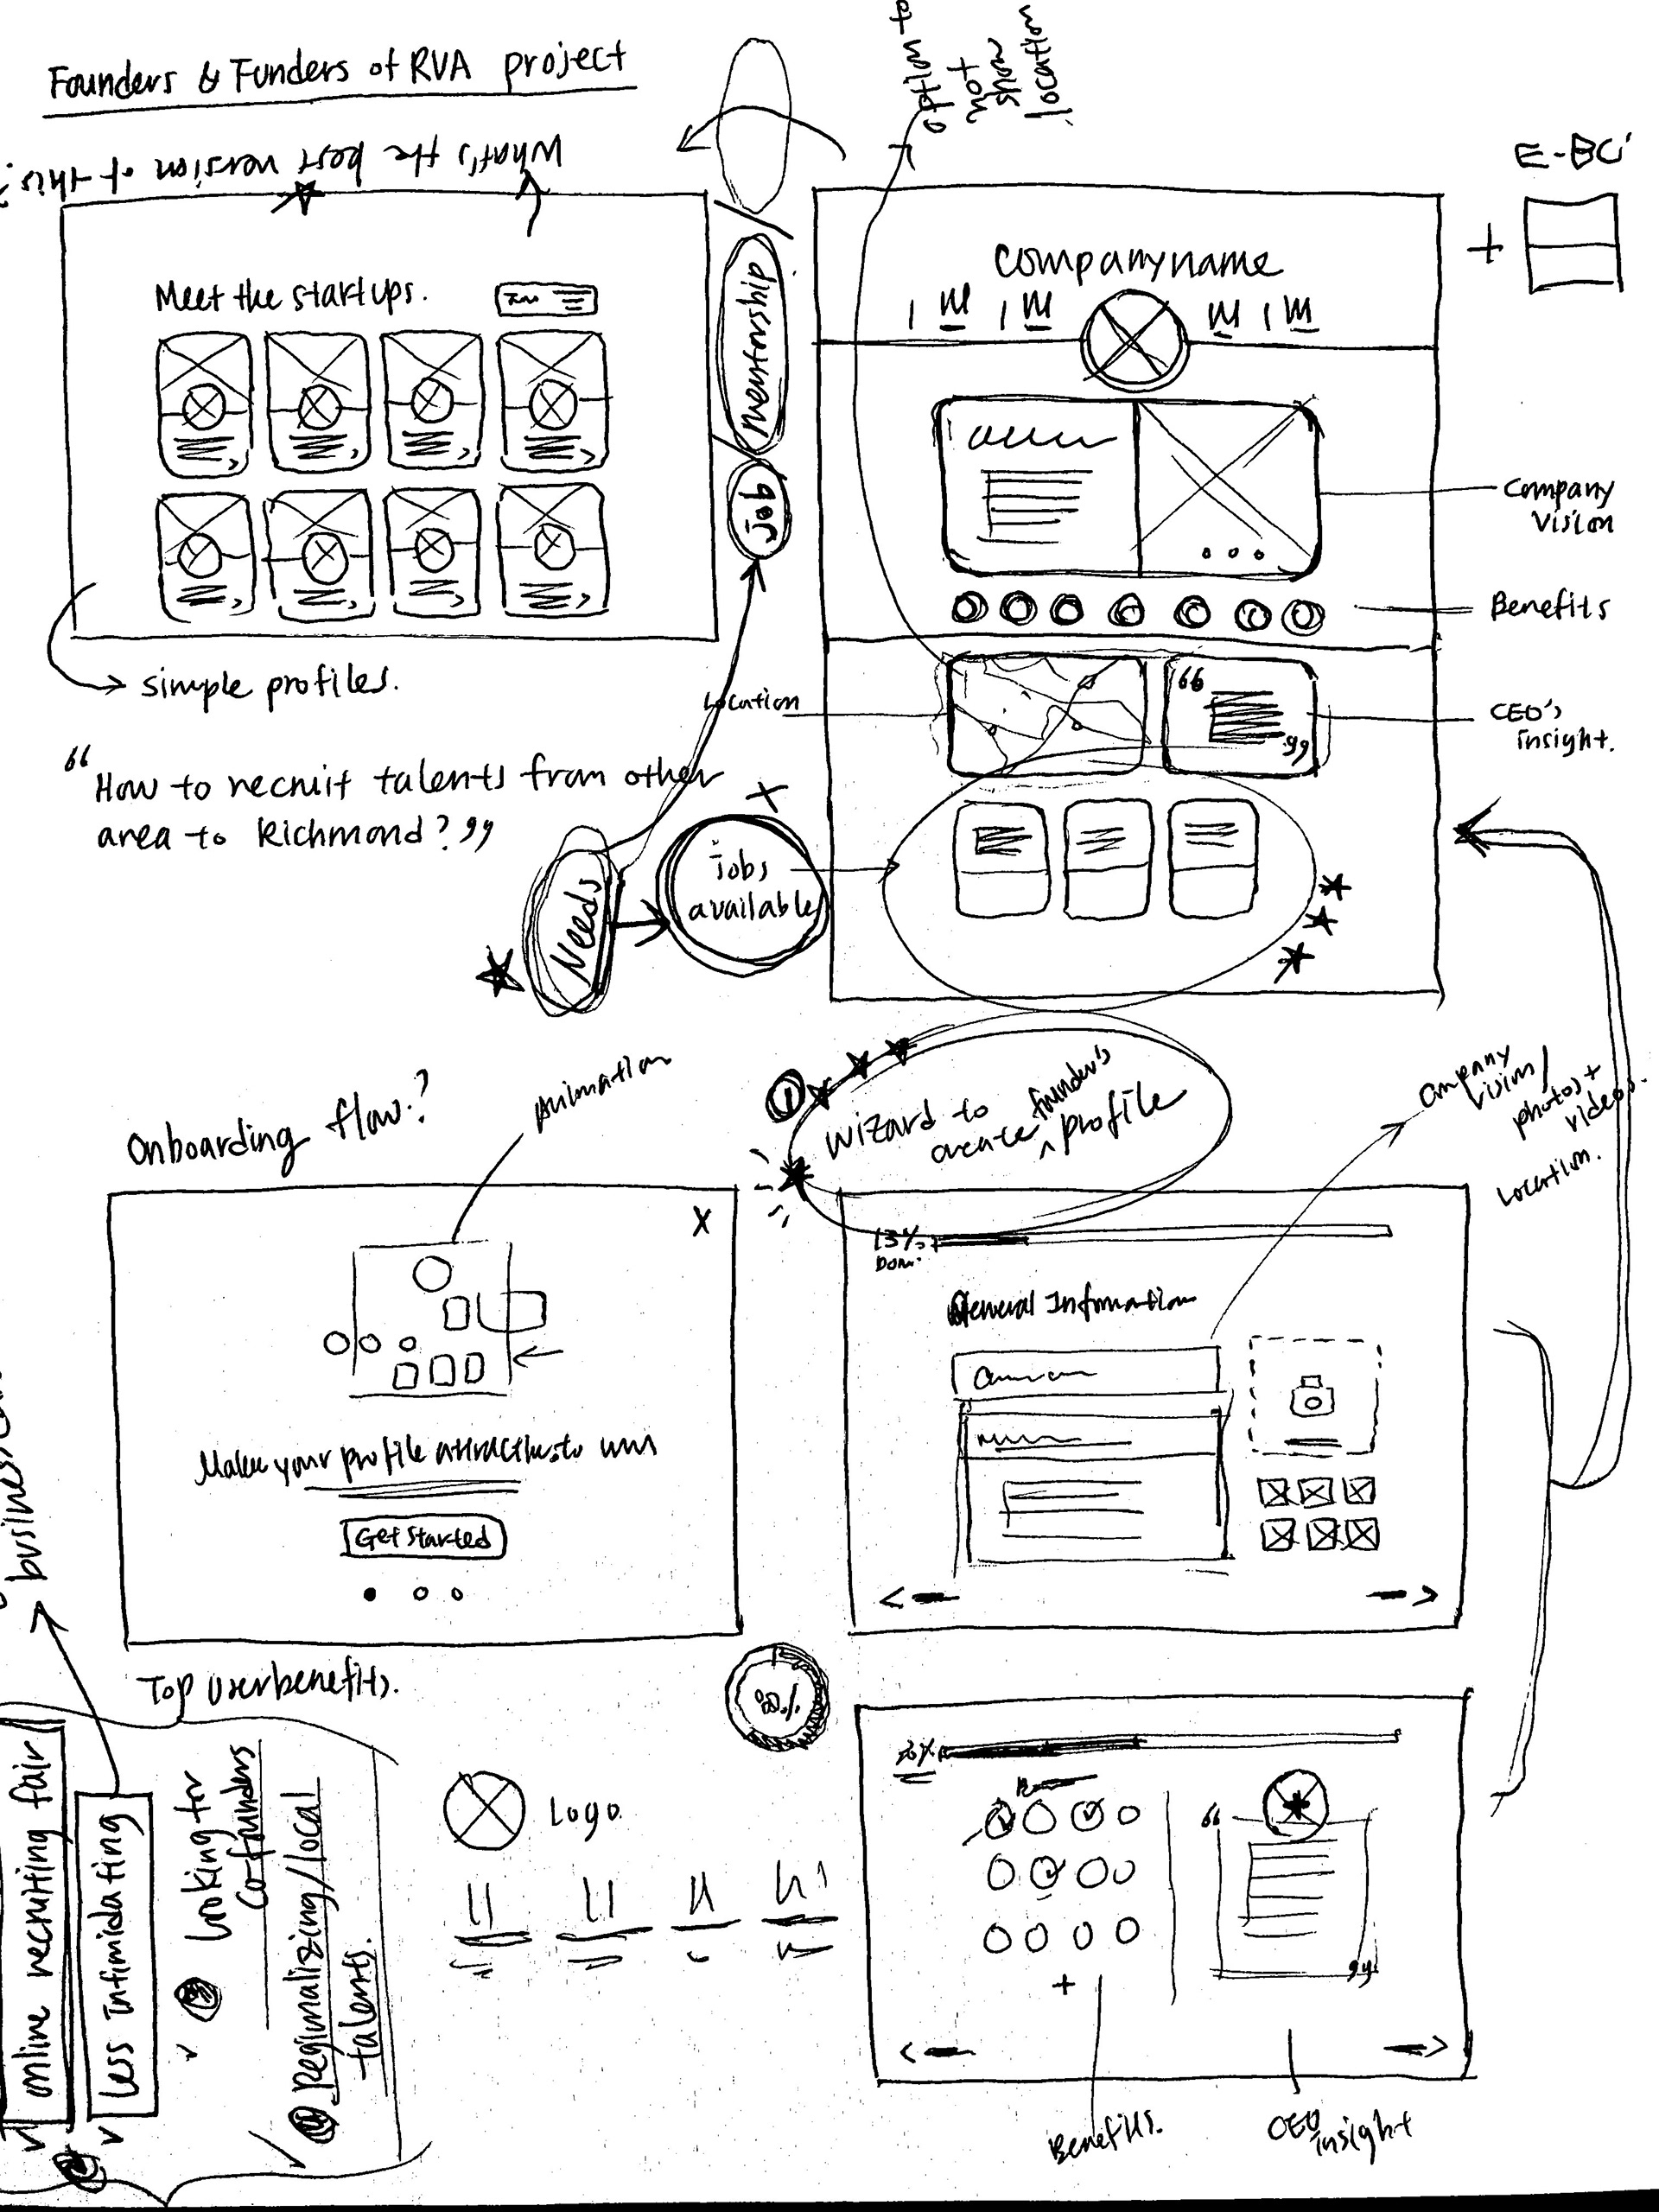 Founders & Funders of RVA project
What's the best version of this?
option to
not
show
location
E-BC
+
Meet the startups.
mentorship
Job
simple profiles.
companyname
Company
Vision
Benefits
Location
CEO's
insight.
“How to recruit talents from other
area to Richmond?”
Needs
Jobs
available
Onboarding flow?
Animation
X
Make your profile attractive to
Get Started
Top user benefits.
1
Wizard to
create founder's profile
13%
Done
General Information
company
vision/
photos+
videos.
Location.
business
online recruiting fair
Less intimidating
Looking for
Co-founders
Regionalizing/local
talents.
Logo
+
Benefits.
CEO
insight